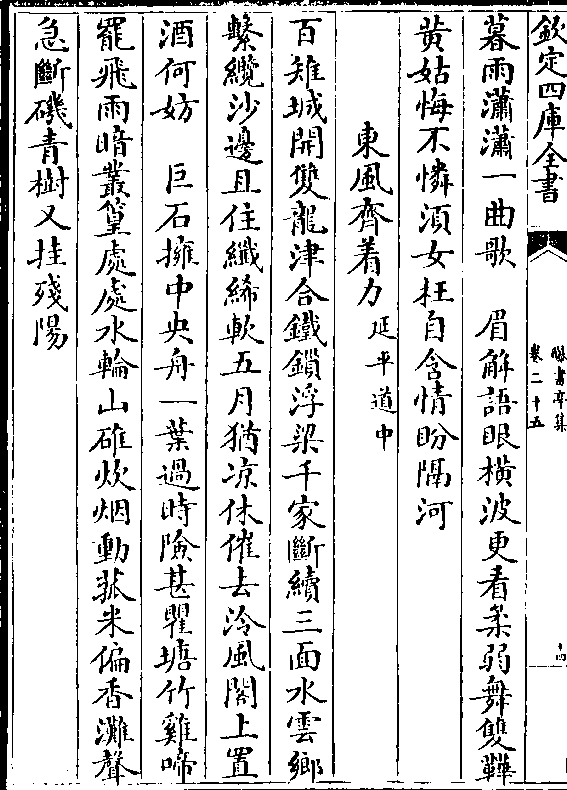 欽定四庫全書
曝書亭集
卷二十五
十四
暮雨瀟瀟一曲歌　眉解語眼横波更看柔弱舞雙鞾
黄姑悔不憐湏女枉自含情盼隔河
東風齊着力延平道中
百雉城開雙龍津合鐵鎖浮梁千家斷續三面水雲鄉
繫纜沙邊且住纖絺軟五月猶凉休催去泠風閣上置
酒何妨　巨石擁中央舟一葉過時險甚瞿塘竹雞啼
罷飛雨暗叢篁處處水輪山碓炊烟動菰米偏香灘聲
急斷磯青樹又挂殘陽